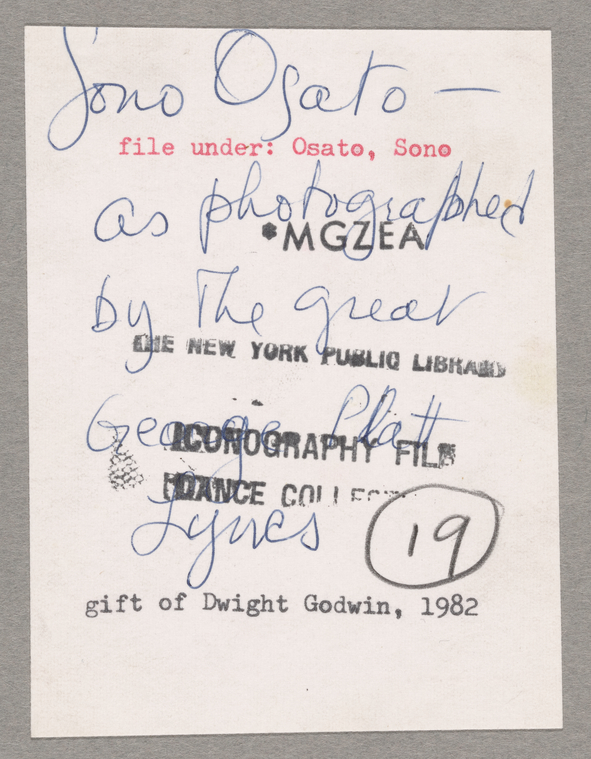 Sono Osato —
file under: Osato, Sono
as photographed
*MGZEA
by The great
THE NEW YORK PUBLIC LIBRARY
George Platt
ICONOGRAPHY FILE
DANCE COLLECTION
Lynes
19
gift of Dwight Godwin, 1982